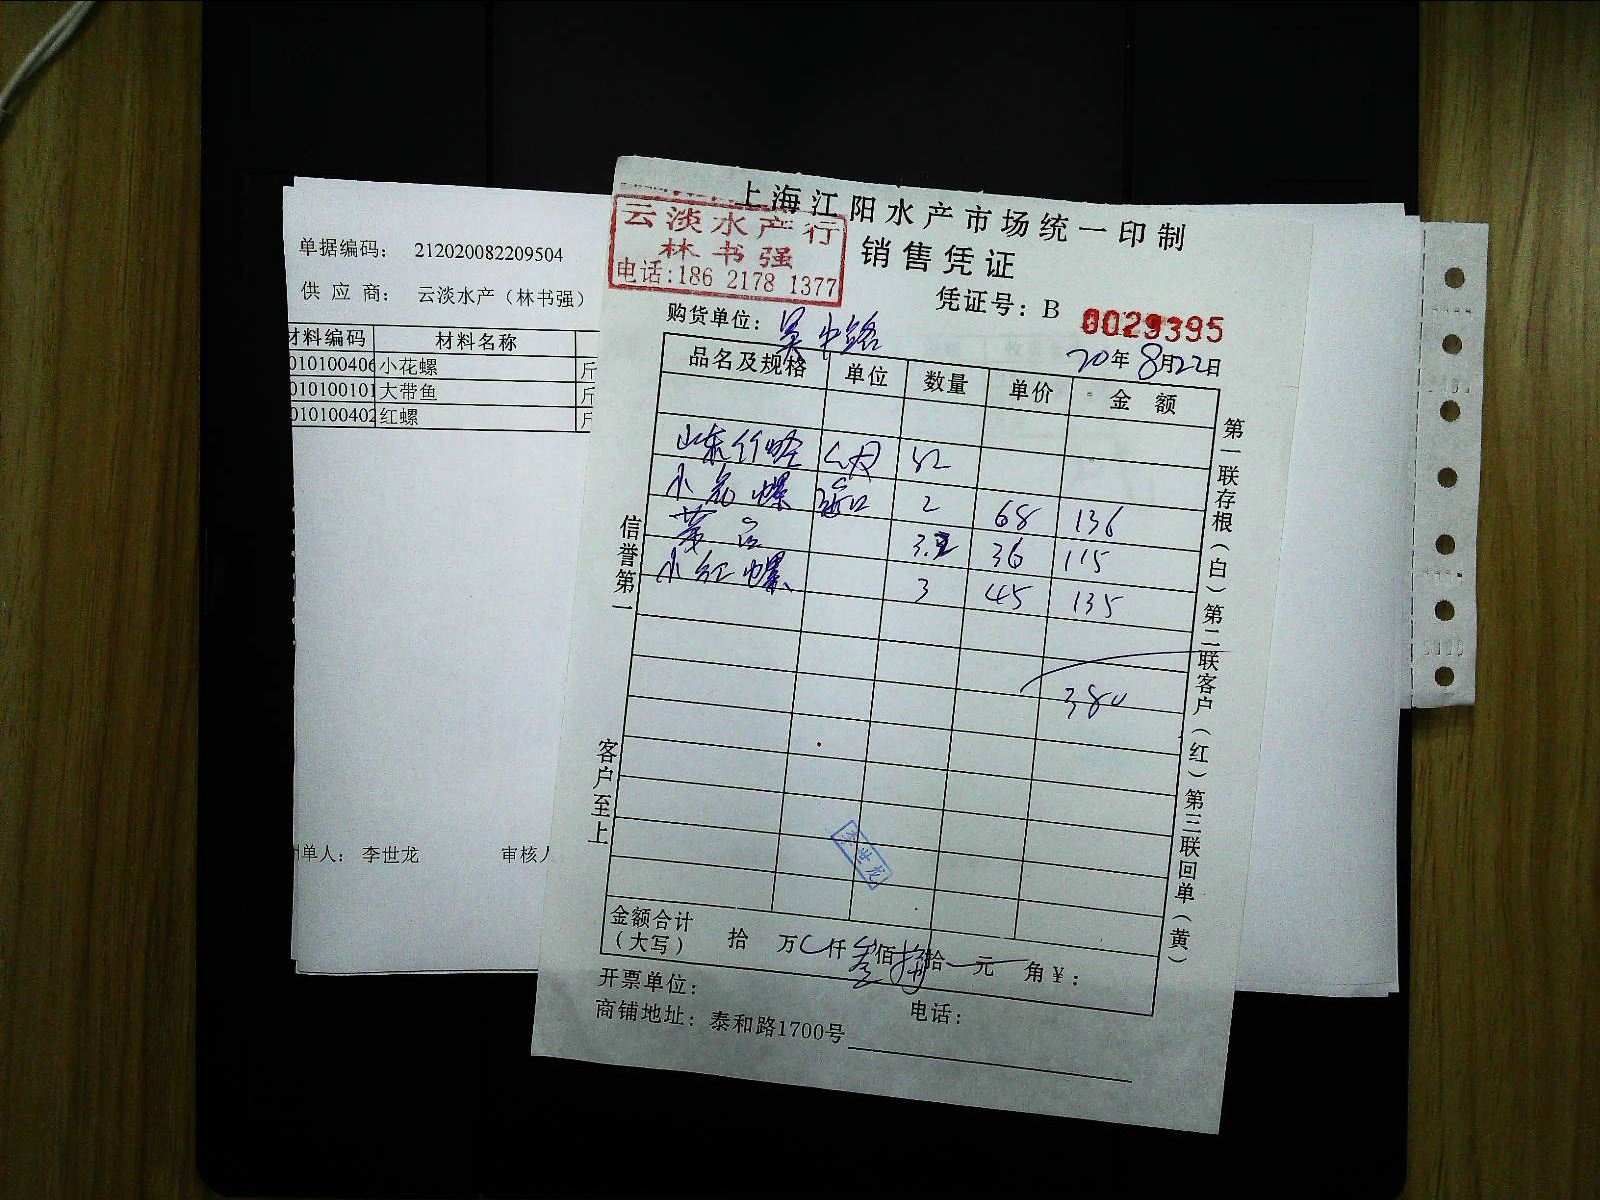 单据编码： 212020082209504
供 应 商： 云淡水产（林书强）
材料编码 材料名称
010100406 小花螺 斤
010100101 大带鱼 斤
010100402 红螺
单人： 李世龙 审核人
上海江阳水产市场统一印制
云淡水产行
林书强
电话:186 2178 1377
销售凭证
凭证号：B 0029395
购货单位：吴中路
20年8月22日
品名及规格 单位 数量 单价 金 额
山东
小花螺 2 68 136
3.2 36 115
小红螺 3 45 135
380
信誉第一
客户至上
第一联存根（白）第二联客户（红）第三联回单（黄）
李世龙
金额合计
（大写） 拾 万 仟 叁佰捌拾 元 角￥：
开票单位：
电话：
商铺地址：泰和路1700号